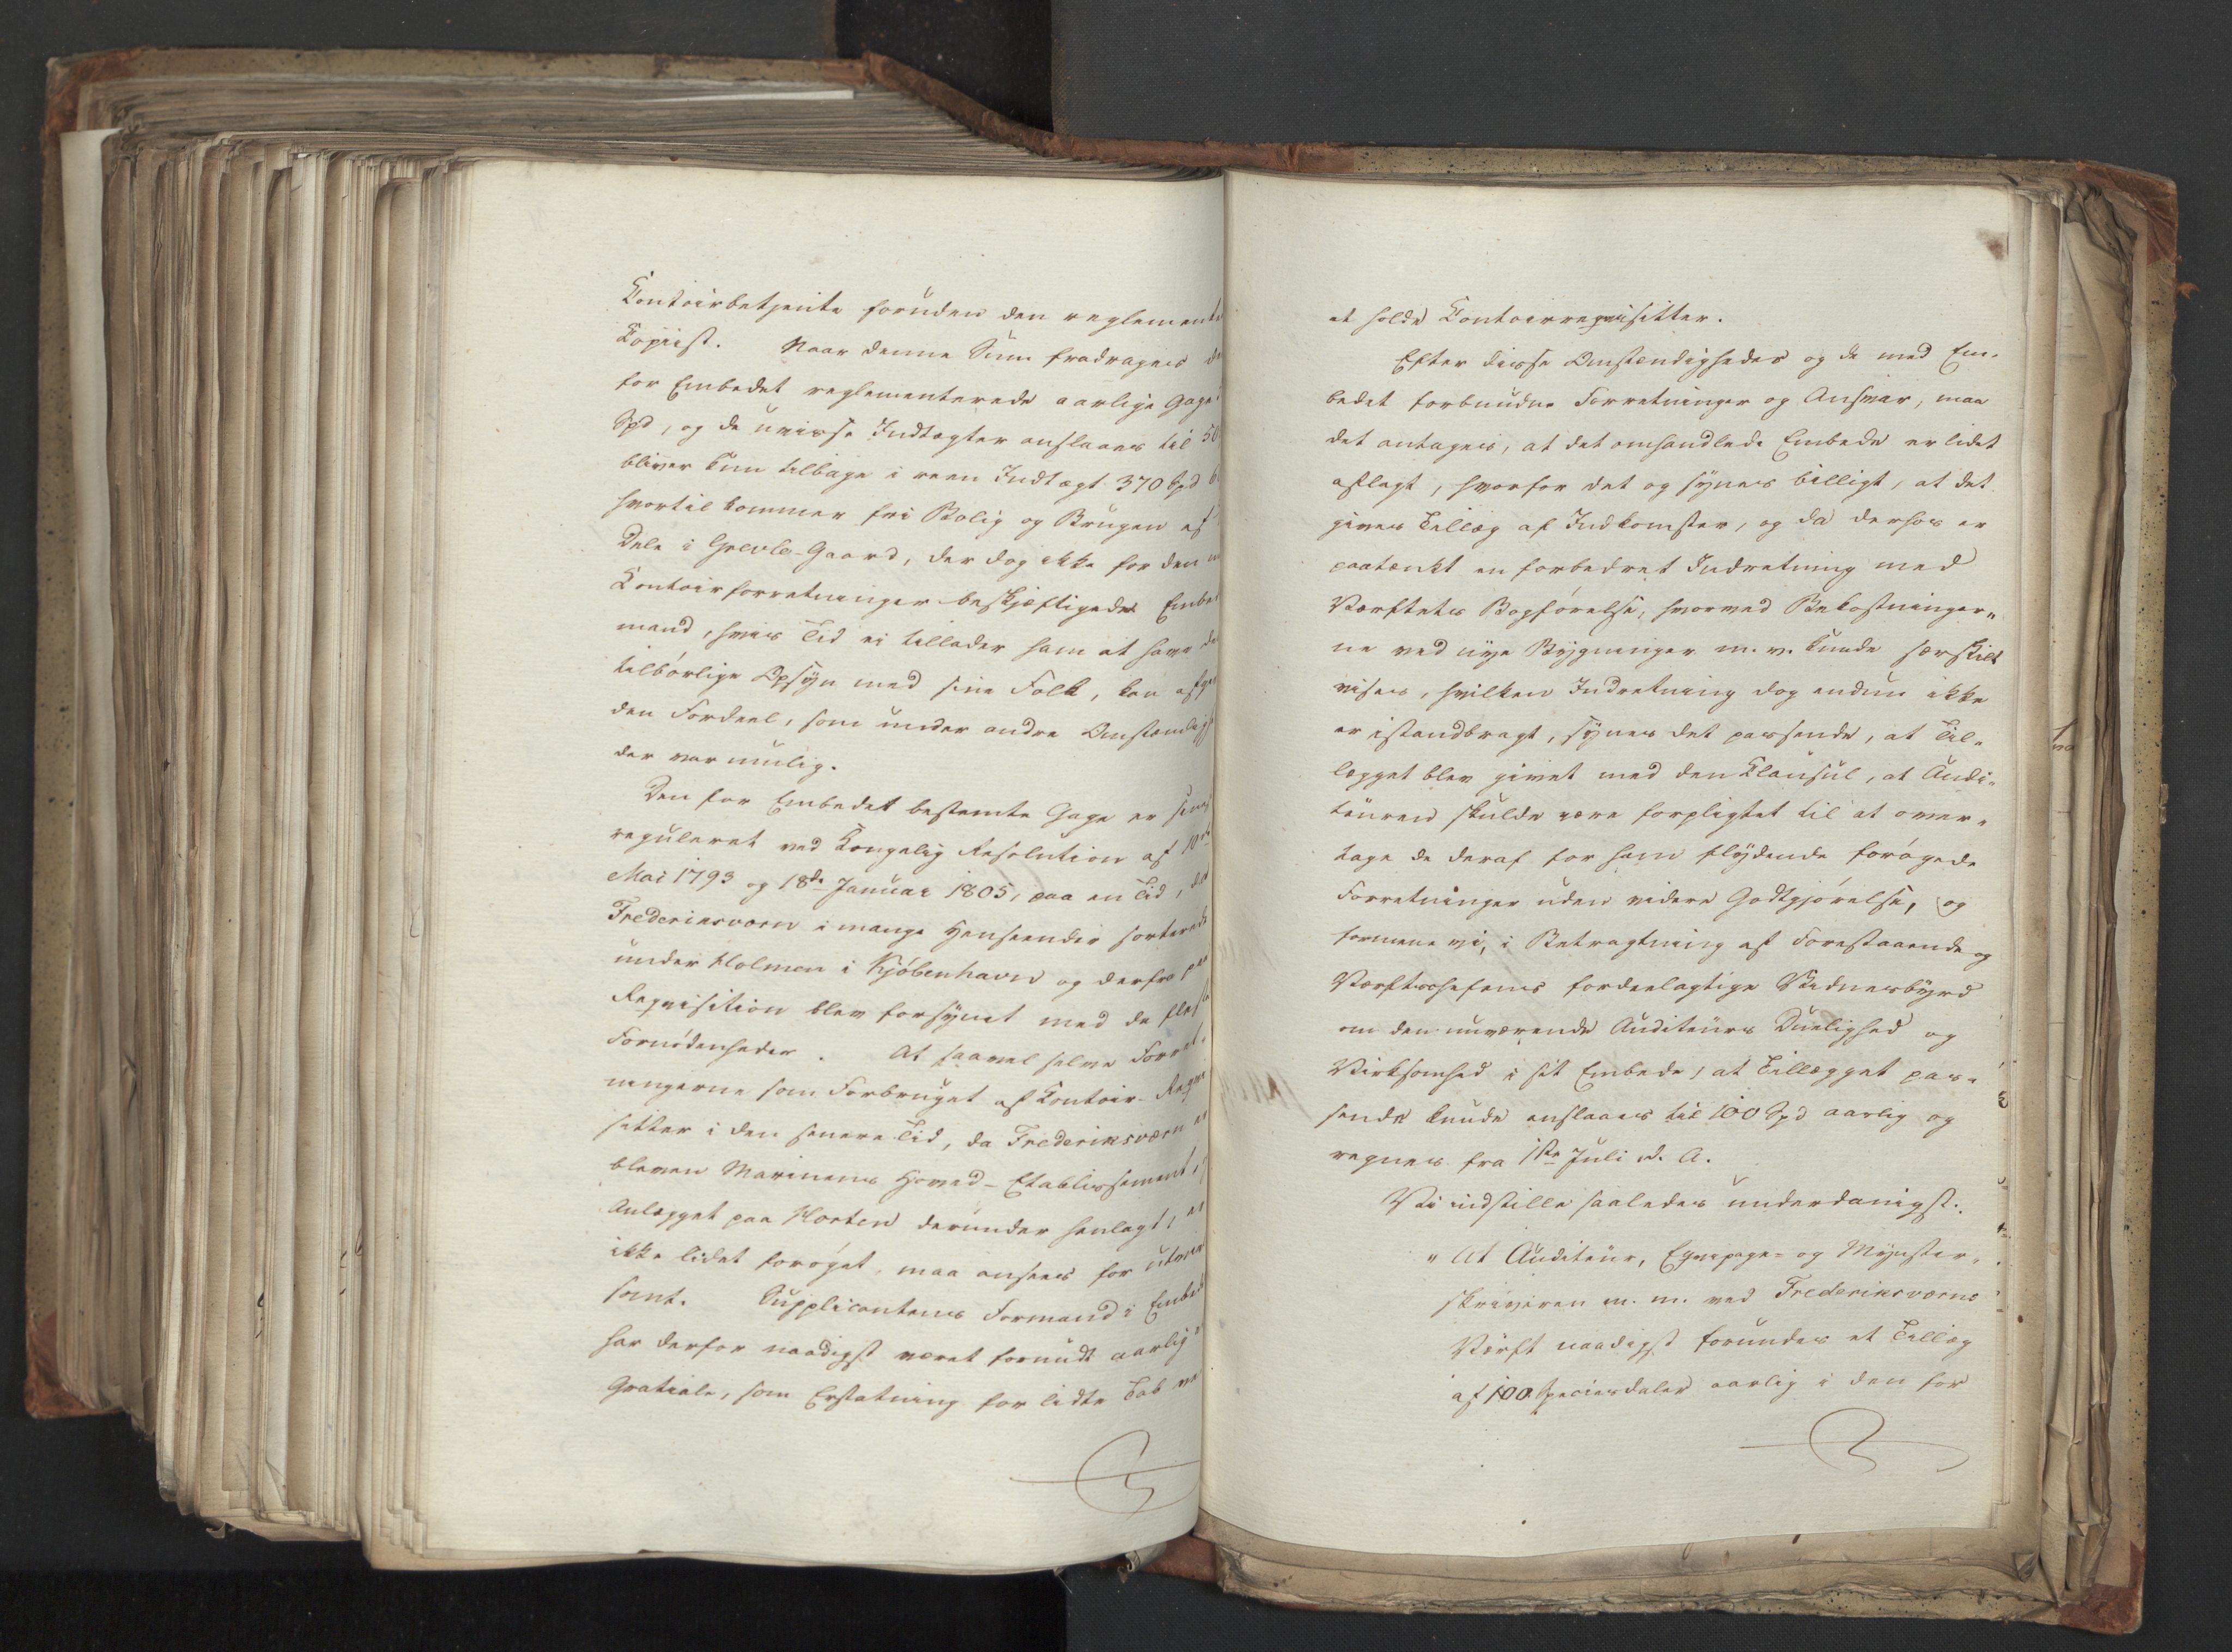 Contoirbetjente foruden den reglemente
Copiist. Naar denne Sum fradrages
for Embedet reglementerede aarlige Gage
Spd, og de uvisse Indtægter anslaaes til 50
bliver kun tilbage i reen Indtægt 370 Spd
hvortil kommer fri Bolig og Brugen af
Dele i Grevle-Gaard, der dog ikke for den
Contoirforretninger beskjæftigede Embed
mand, hvis Tid ei tillader ham at have
tilbørlige Opsyn med sine Folk, kan
den Fordeel, som under andre Omstændighe
der var mulig.
Den for Embedet bestemte Gage er
reguleret ved Kongelig Resolution af 10de
Mai 1793 og 18de Januar 1805, paa en Tid, da
Frederiksværn i mange Henseender sorterede
under Holmen i Kjøbenhavn og derfra paa
Requisition blev forsynet med de fleste
Fornødenheder. At saavel selve Forret-
ningerne som Forbruget af Contoir-Reqvi
sitter i den senere Tid, da Frederiksværn er
bleven Marinens Hoved-Etablissement,
Anlægget paa Horten derunder henlagt, er
ikke lidet forøget, maa ansees for utvivl
somt. Supplicantens Formand i Embed
har derfor naadigst været forundt aarlig
Gratiale, som Erstatning for lidte Tab ved
at holde Contoirreqvisitter.
Efter disse Omstændigheder og de med Em-
bedet forbundne Forretninger og Ansvar, maa
det antages, at det omhandlede Embede er lidet
aflagt, hvorfor det og synes billigt, at det
gives Tillæg af Indkomster, og da derhos er
paatænkt en forbedret Indretning med
Værftets Bogførelse, hvorved Bekostninger-
ne ved nye Bygninger m. v. kunde særskilt
vises, hvilken Indretning dog endnu ikke
er istandbragt, synes det passende, at Til-
lægget blev givet med den Clausul, at Audi-
teuren skulde være forpligtet til at over-
tage de deraf for ham flydende forøgede
Forretninger uden videre Godtgjørelse, og
formene vi, i Betragtning af Forestaaende og
Værftschefens fordeelagtige Vidnesbyrd
om den nuværende Auditeurs Duelighed og
Virksomhed i sit Embede, at Tillægget pas-
sende kunde anslaaes til 100 Spd aarlig og
regnes fra 1ste Juli d. A.
Vi indstille saaledes underdanigst:
"At Auditeur, Eqvipage- og Mynster-
skriveren m. m. ved Frederiksværns
Værft naadigst forundes et Tillæg
af 100 Speciesdaler aarlig i den for